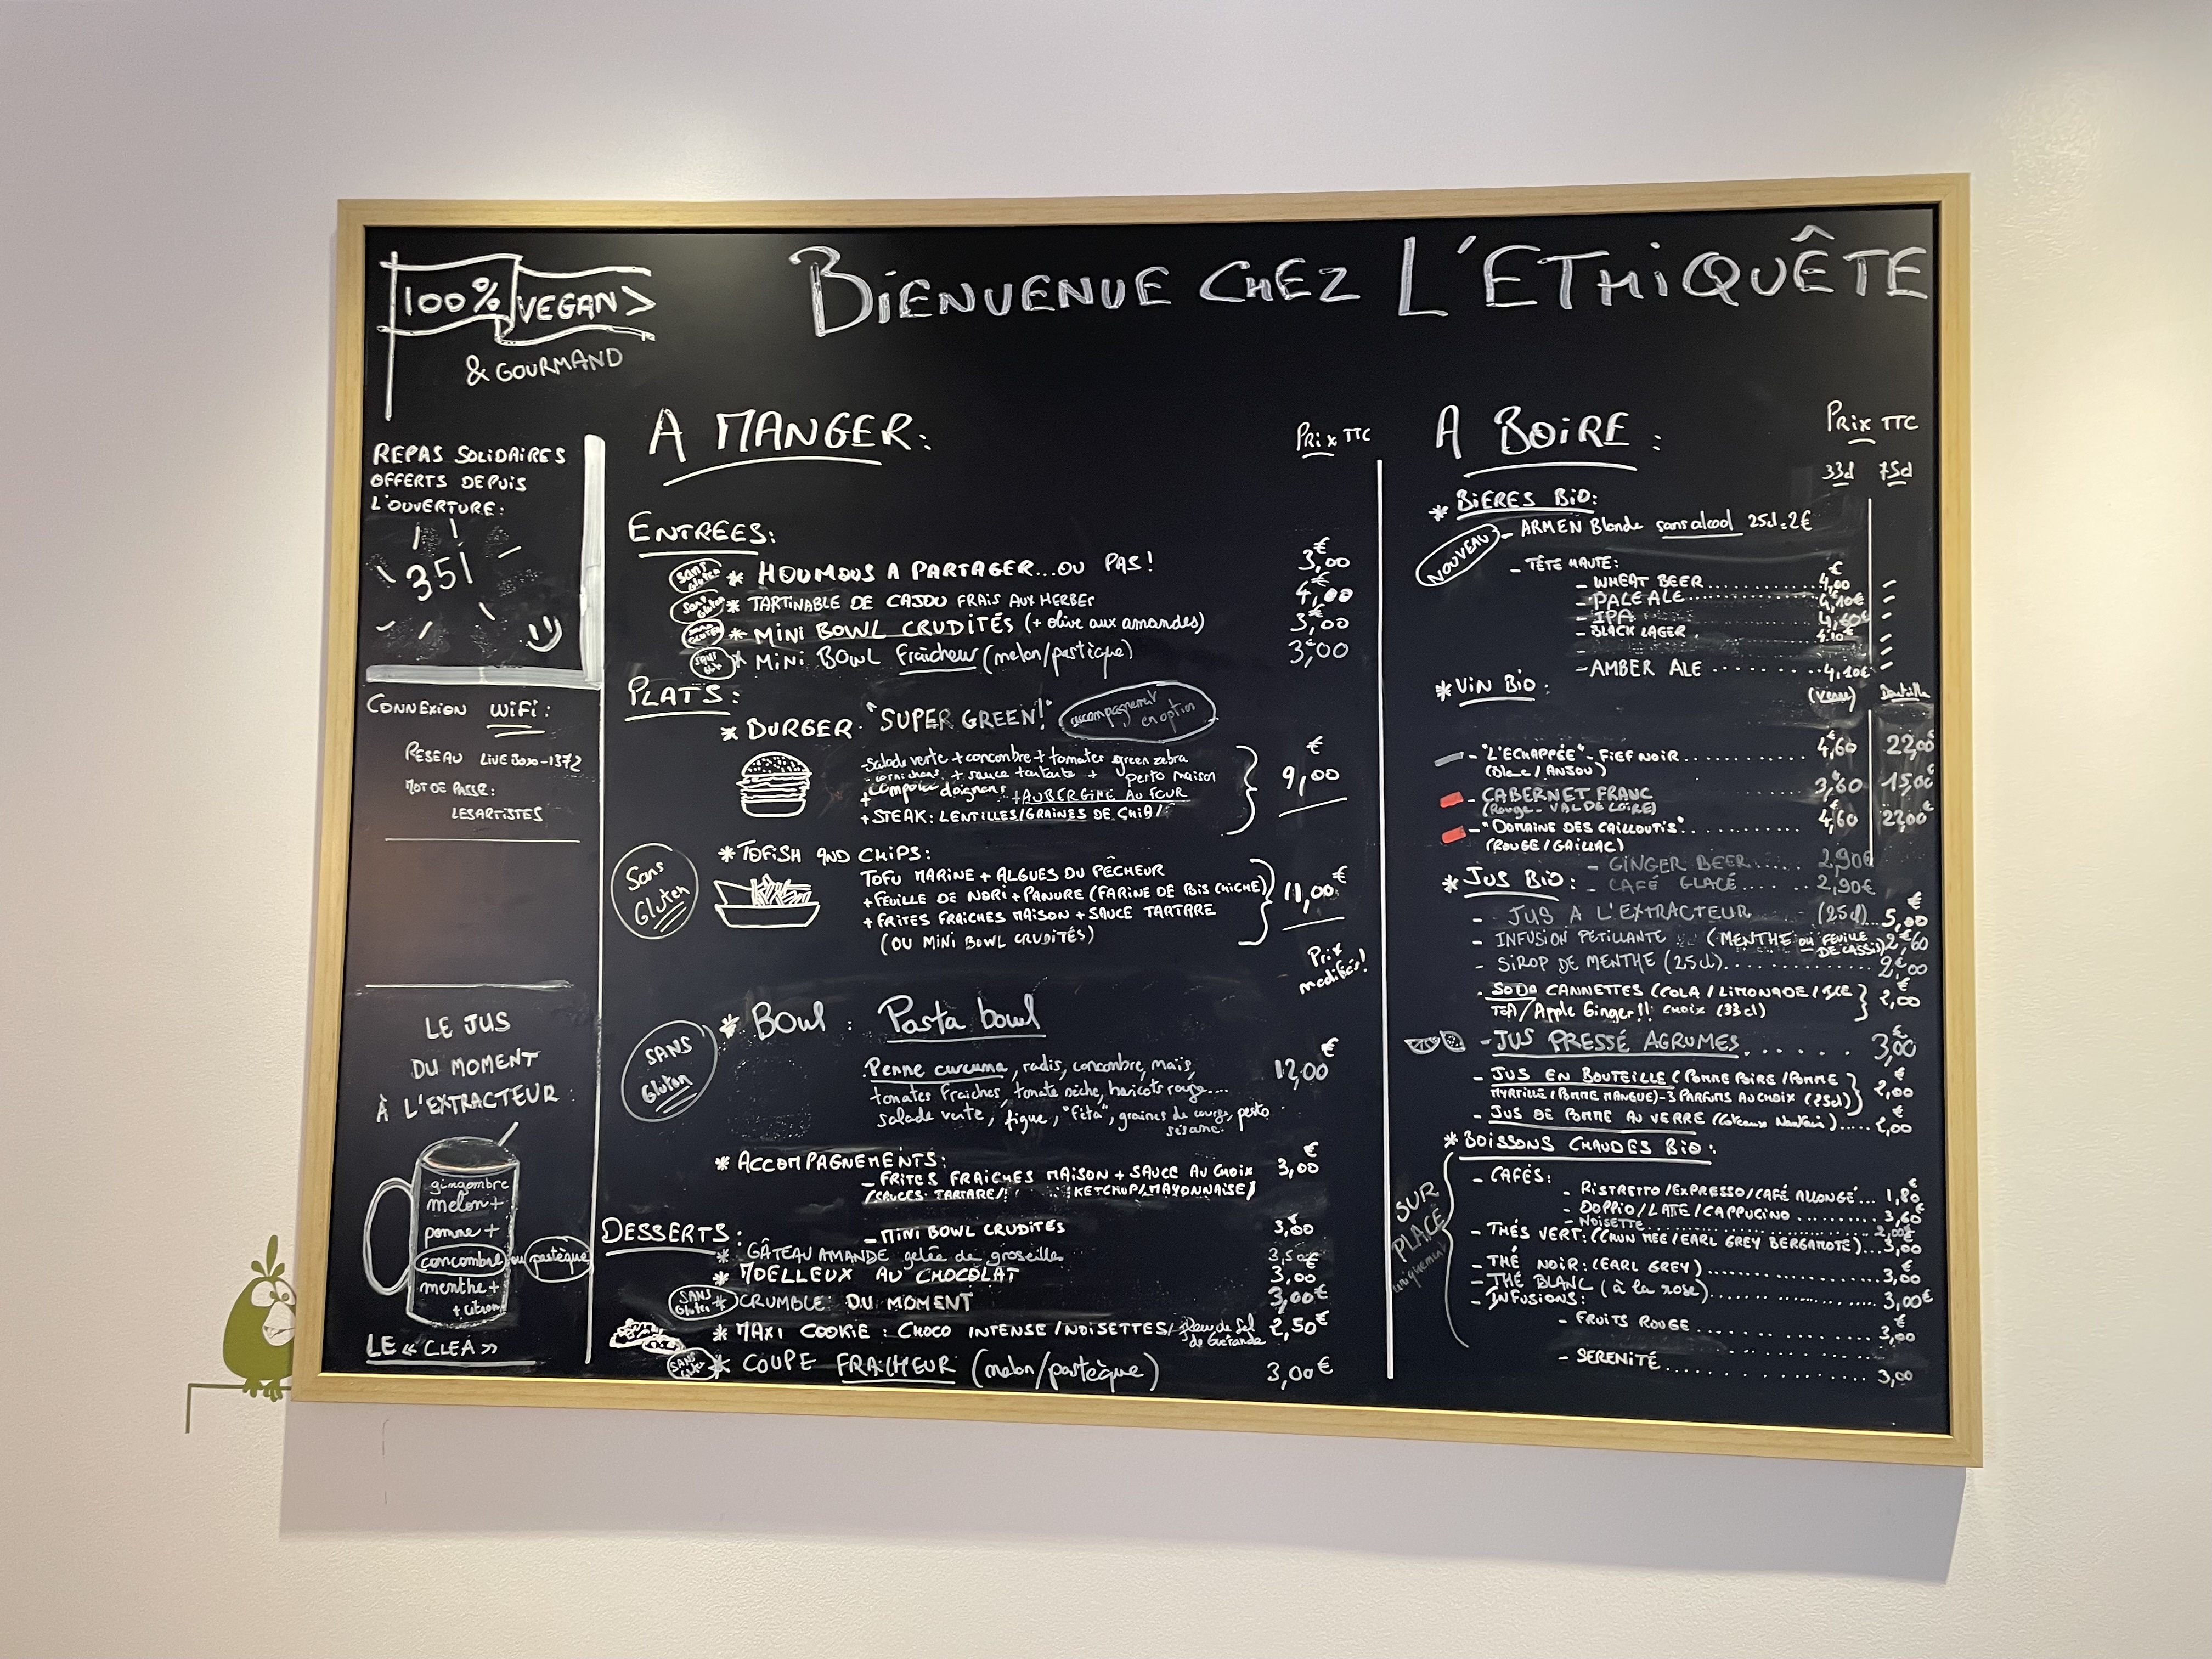 100% VEGAN
& GOURMAND
BIENVENUE CHEZ L'ETHIQUÊTE
REPAS SOLIDAIRES
OFFERTS DEPUIS
L'OUVERTURE:
351
CONNEXION WIFI:
RESEAU LIVEBOXO-1372
MOT DE PASSE:
LESARTISTES
LE JUS
DU MOMENT
À L'EXTRACTEUR:
gingembre
melon +
pomme +
concombre ou pastèque
menthe +
+ citron
LE "CLEA"
A MANGER:
PRIX TTC
ENTREES:
SANS Gluten * HOUMOUS A PARTAGER...OU PAS! 3,00€
Sans Gluten * TARTINABLE DE CAJOU FRAIS AUX HERBES 4,00€
SANS GLUTEN * MINI BOWL CRUDITÉS (+ olive aux amandes) 3,00€
SANS * MINI BOWL Fraîcheur (melon/pastèque) 3,00
PLATS:
* BURGER "SUPER GREEN!" accompagnement en option
-salade verte + concombre + tomates green zebra
cornichons + sauce tartare + pesto maison
+ compotée d'oignons + AUBERGINE AU FOUR
+ STEAK: LENTILLES/GRAINES DE CHIA/
9,00€
Sans Gluten
* TOFISH AND CHIPS:
TOFU MARINE + ALGUES DU PÊCHEUR
+ FEUILLE DE NORI + PANURE (FARINE DE POIS CHICHE)
+ FRITES FRAICHES MAISON + SAUCE TARTARE
(OU MINI BOWL CRUDITÉS)
11,00€
Prix modifiés!
SANS Gluten
* Bowl: Pasta bowl
Penne curcuma, radis, concombre, maïs,
tomates fraîches, tomate sèche, haricots rouge....
salade verte, figue, "féta", graines de courge, pesto
sésame.
12,00€
* ACCOMPAGNEMENTS:
- FRITES FRAICHES MAISON + SAUCE AU CHOIX 3,00€
(SAUCES TARTARE/ KETCHUP/MAYONNAISE)
- MINI BOWL CRUDITÉS 3,00
DESSERTS:
* GÂTEAU AMANDE gelée de groseille 3,50€
* MOELLEUX AU CHOCOLAT 3,00
SANS Gluten * CRUMBLE DU MOMENT 3,00€
* MAXI COOKIE: CHOCO INTENSE/NOISETTES/fleur de Sel de Guérande 2,50€
SANS Gluten * COUPE FRAICHEUR (melon/pastèque) 3,00€
A BOIRE:
PRIX TTC
33cl 75cl
* BIERES BIO:
NOUVEAU - ARMEN Blonde sans alcool 25cl=2€
- TÊTE HAUTE:
- WHEAT BEER 4,60€ -
- PALE ALE 4,10€ -
- IPA 4,60€ -
- BLACK LAGER 4,10€ -
- AMBER ALE 4,10€ -
* VIN BIO: (Verre) Bouteille
- "L'ECHAPPÉE" - FIEF NOIR 4,60€ 22,00€
(Blanc/ANJOU)
- CABERNET FRANC 3,60 15,00€
(Rouge - VAL DE LOIRE)
- "DOMAINE DES CAILLOUTIS" 4,60€ 22,00€
(ROUGE/GAILLAC)
- GINGER BEER 2,90€
- CAFÉ GLACÉ 2,90€
* JUS BIO:
- JUS A L'EXTRACTEUR (25cl) 5,00€
- INFUSION PETILLANTE (MENTHE ou FEUILLE DE CASSIS) 2,60€
- SIROP DE MENTHE (25cl) 2,00€
- SODA CANNETTES (COLA/LIMONADE/ICE
TEA/Apple Ginger!! CHOIX (33cl) 2,00€
- JUS PRESSÉ AGRUMES 3,00€
- JUS EN BOUTEILLE (POMME POIRE/POMME
MYRTILLE/POMME MANGUE) - 3 PARFUMS AU CHOIX (25cl) 2,00€
- JUS DE POMME AU VERRE (Coteaux Nantais) 2,00€
* BOISSONS CHAUDES BIO:
SUR PLACE uniquement
- CAFÉS:
- RISTRETTO/EXPRESSO/CAFÉ ALLONGÉ 1,80€
- DOPPIO/LATE/CAPPUCINO 3,60
- NOISETTE 2,00€
- THÉS VERT: (CHUN MEE/EARL GREY BERGAMOTE) 3,00
- THÉ NOIR: (EARL GREY) 3,00€
- THÉ BLANC (à la rose) 3,00€
- INFUSIONS:
- FRUITS ROUGE 3,00
- SERENITÉ 3,00